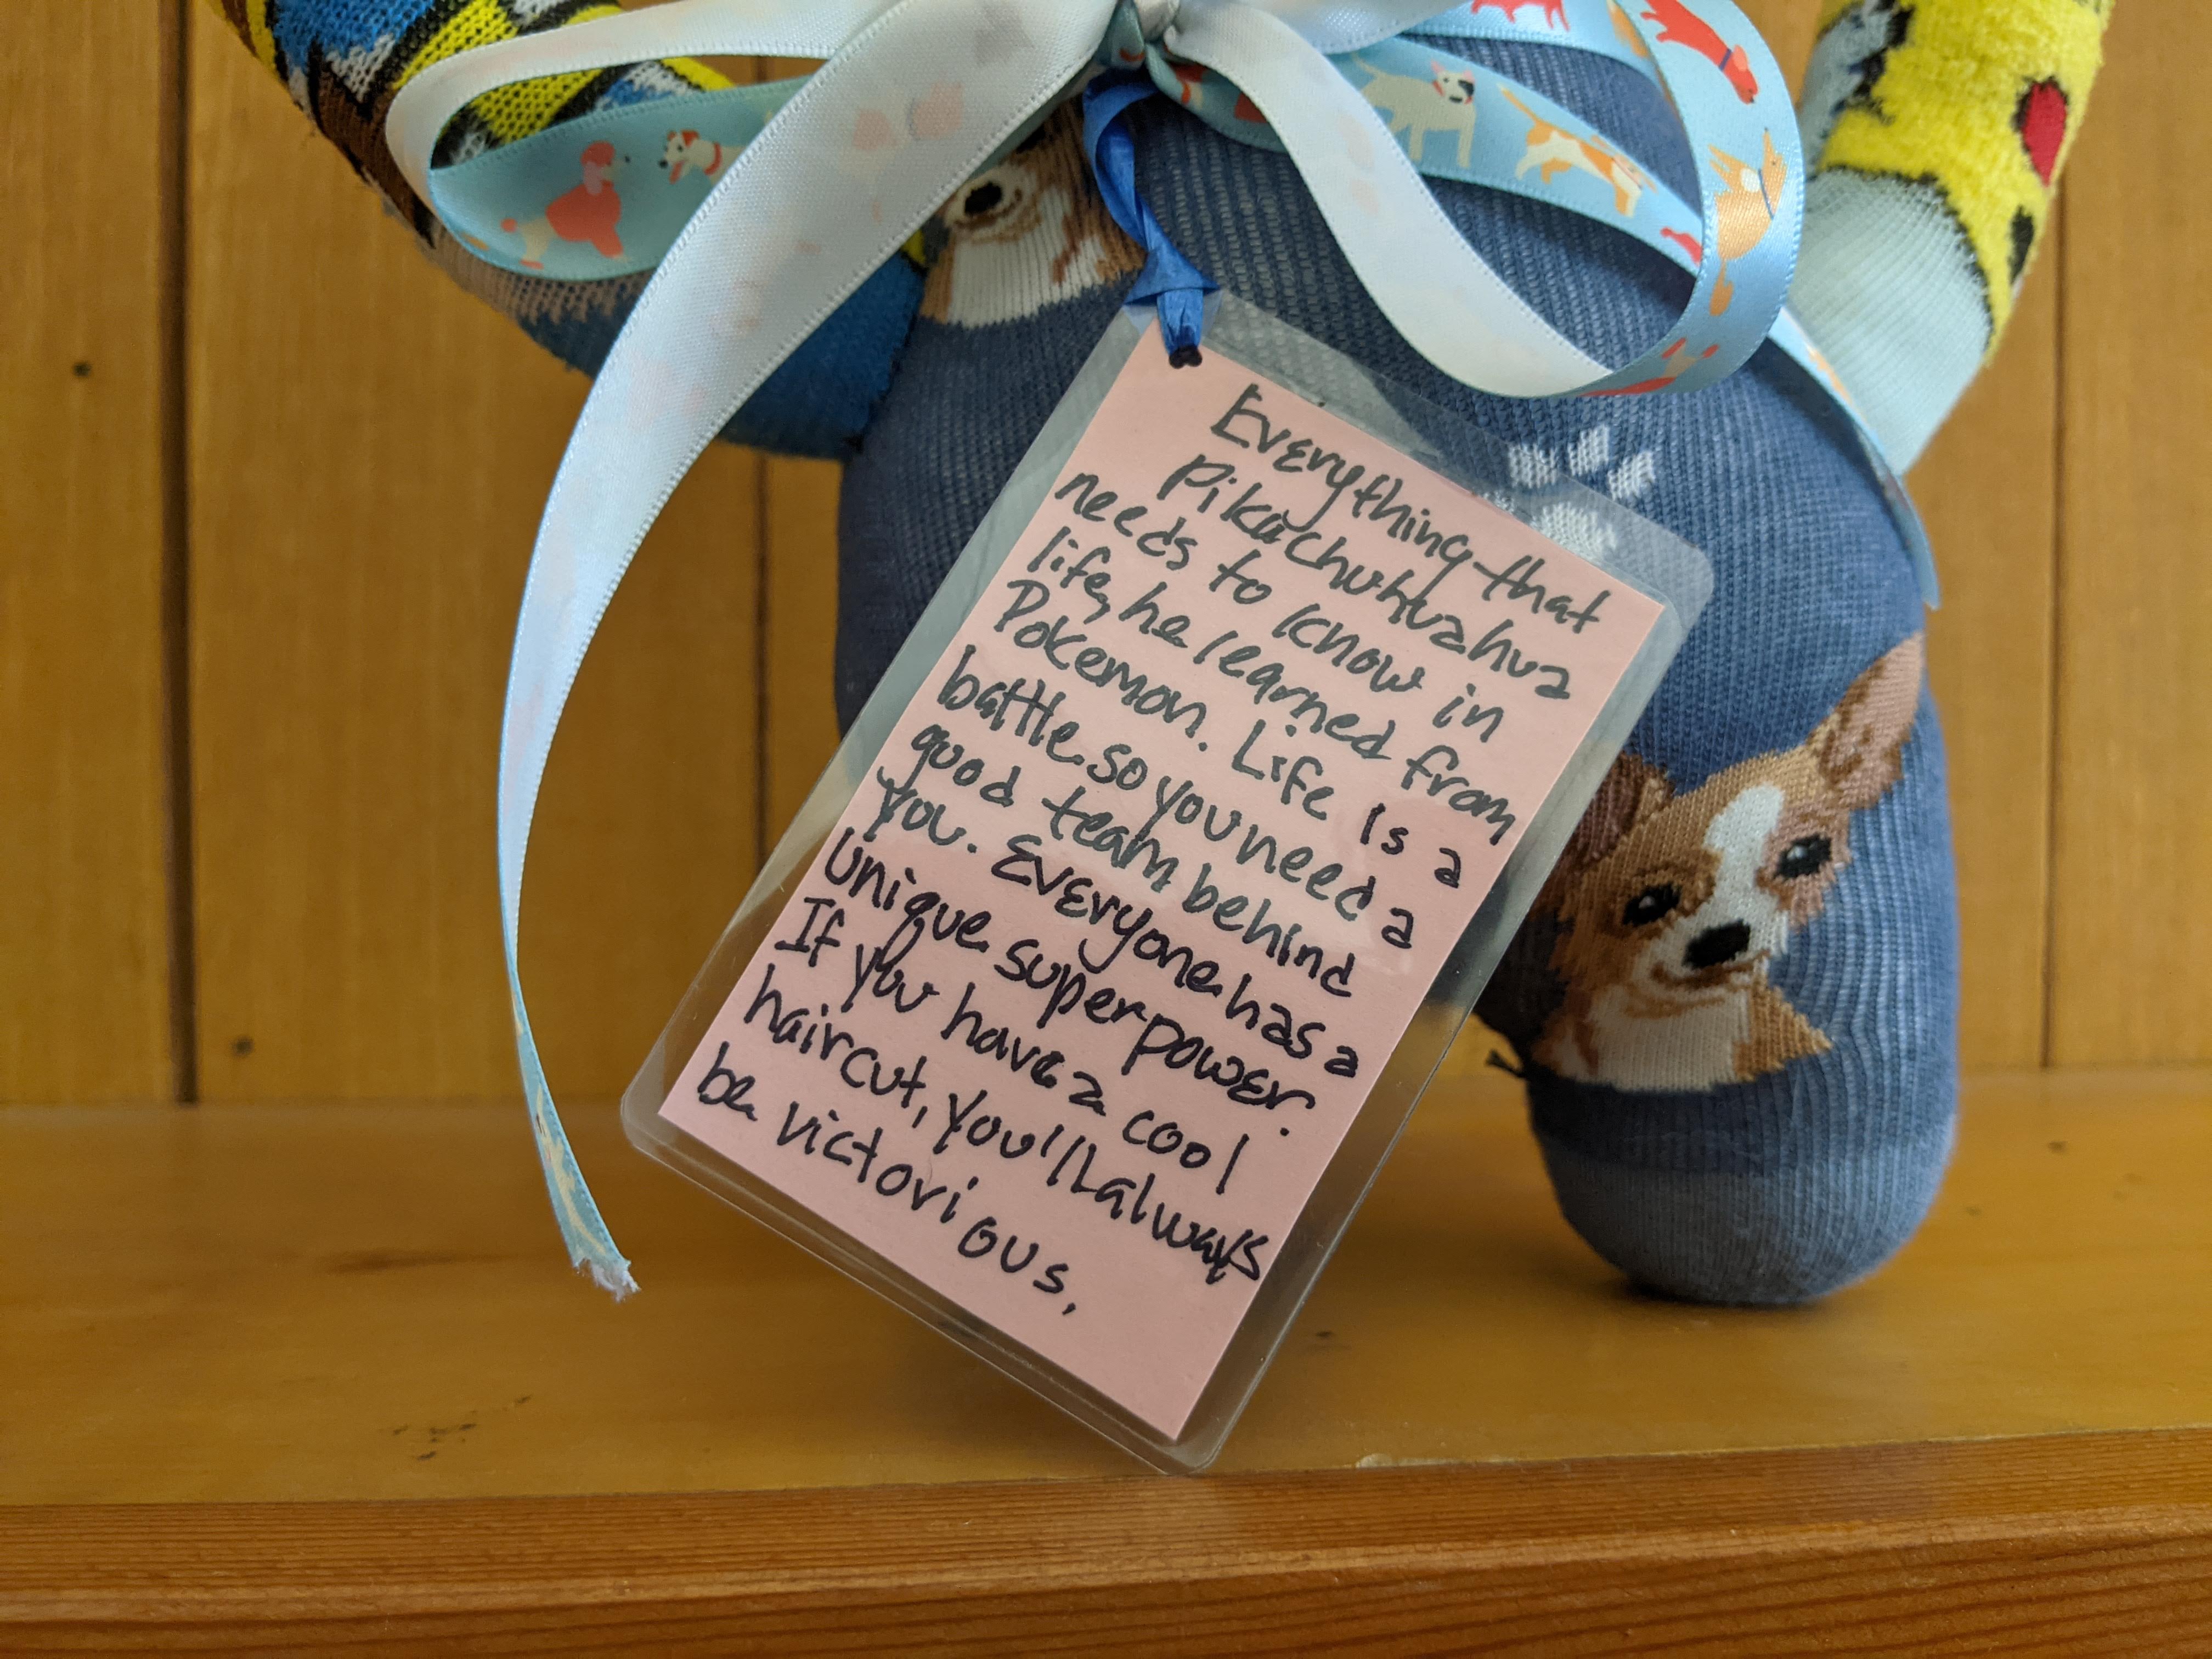 Everything that
Pikachuhuahua
needs to know in
life, he learned from
Pokemon. Life is a
battle so you need a
good team behind
you. Everyone has a
unique superpower.
If you have a cool
haircut, you'll always
be victorious.